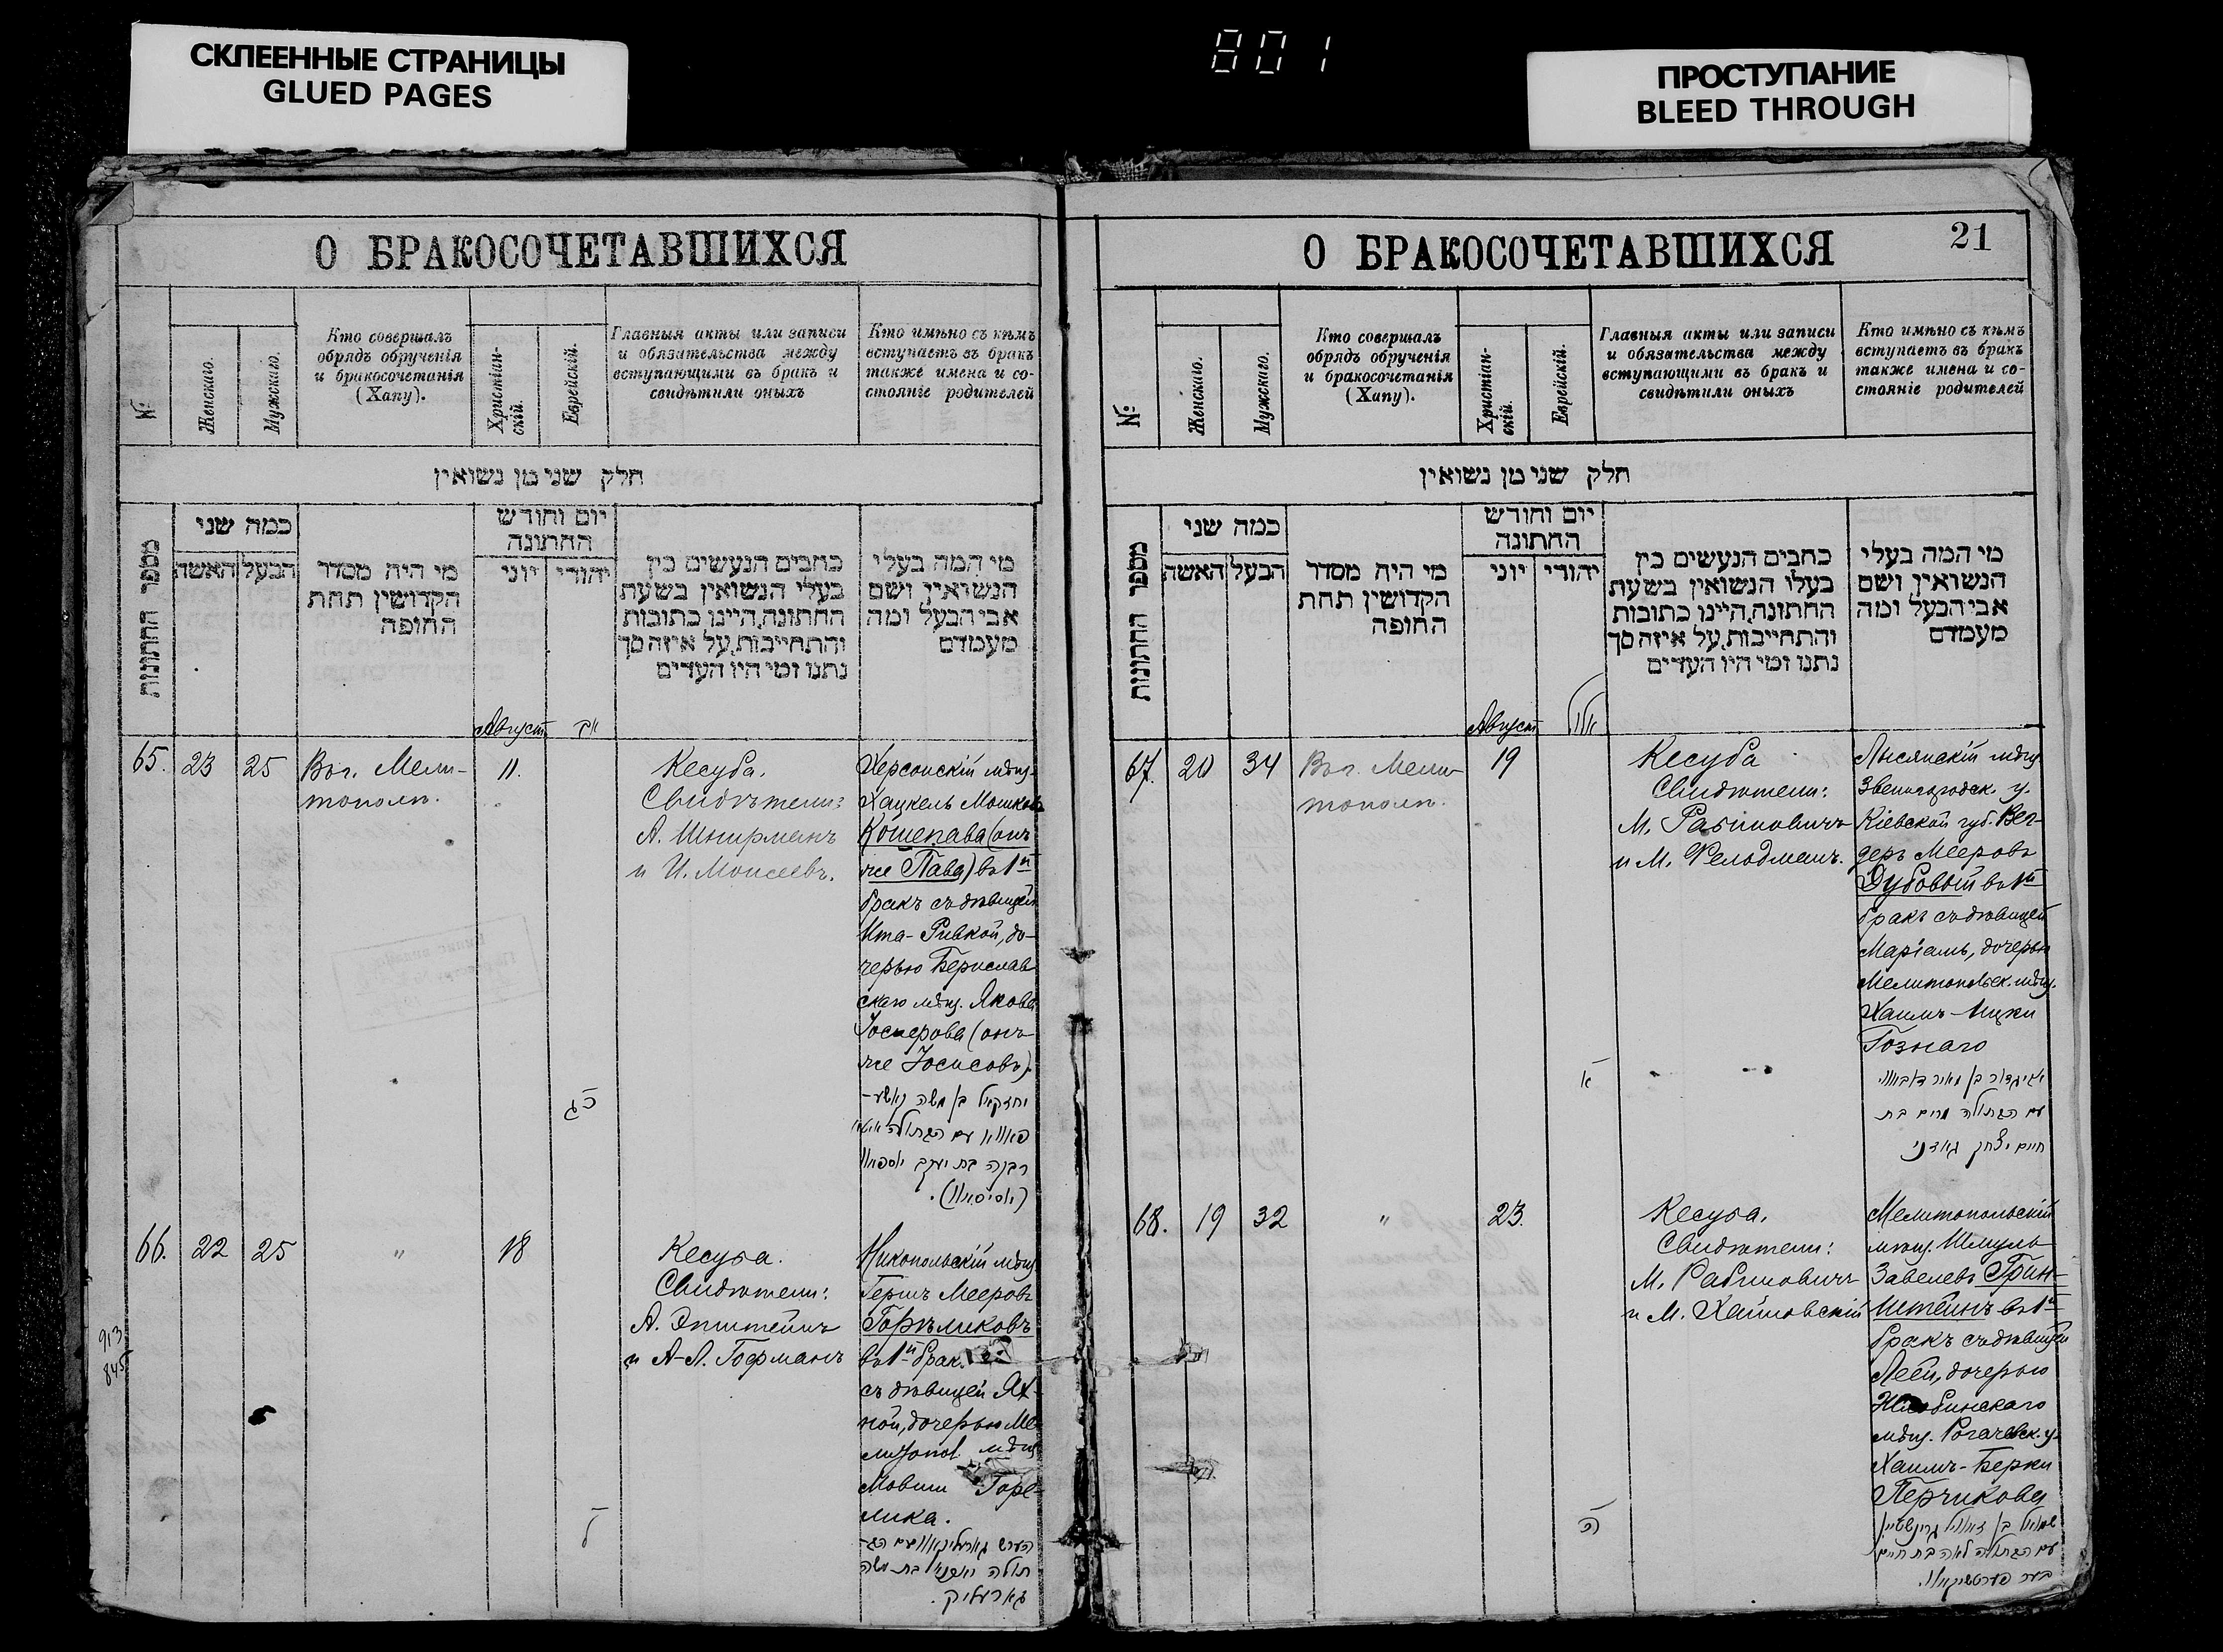 СКЛЕЕННЫЕ СТРАНИЦЫ
GLUED PAGES
801
ПРОСТУПАНИЕ
BLEED THROUGH
О БРАКОСОЧЕТАВШИХСЯ
№
Женскаго.
Мужскаго.
Кто совершалъ
обрядъ обрученія
и бракосочетанія
(Хупу).
Христіан-
скій.
Еврейскій.
Главныя акты или записи
и обязательства между
вступающими въ бракъ и
свидѣтили оныхъ
Кто имѣно съ кѣмъ
вступаетъ въ бракъ
также имена и со-
стояніе родителей
חלק שני מן נשואין
מספר החתונות
כמה שני
האשה
הבעל
מי היה מסדר
הקדושין תחת
החופה
יום וחודש
החתונה
יוני
יהודי
כתבים הנעשים בין
בעלי הנשואין בשעת
החתונה, היינו כתובות
והתחייבות, על איזה סך
נתנו ומי היו העדים
מי המה בעלי
הנשואין ושם
אבי הבעל ומה
מעמדם
Август
אב
65.
23
25
Въ г. Мели-
тополѣ.
11.
כג
Кесуба.
Свидѣтели:
А. Шнирманъ
и И. Моисеевъ.
Херсонскій мѣщ.
Хацкель Мошковъ
Кошепава (онъ
же Пава) въ 1й
бракъ съ дѣвицей
Ита-Ривкой, до-
черью Бериславъ
скаго мѣщ. Якова
же Іосисовъ).
יחזקאל בן משה קאשע-
פאווא עם הבתולה איטא
רבקה בת יעקב יאספאוו
66.
22
25
"
18
ל
Кесуба.
Свидѣтели:
А. Эпштейнъ
и А-Л. Гофманъ
Никопольскій мѣщ
Гершъ Мееровъ
Горѣликовъ
въ 1й брак.
съ дѣвицей Ях-
ной, дочерью Ме-
литопол. мѣщ
Мовши Горе-
лика.
הערש גארעליקאוו עם הב-
בת משה
גארעליק.
913
845
О БРАКОСОЧЕТАВШИХСЯ
21
№
Женскаго.
Мужскаго.
Кто совершалъ
обрядъ обрученія
и бракосочетанія
(Хупу).
Христіан-
скій.
Еврейскій.
Главныя акты или записи
и обязательства между
вступающими въ бракъ и
свидѣтили оныхъ
Кто имѣно съ кѣмъ
вступаетъ въ бракъ
также имена и со-
стояніе родителей
חלק שני מן נשואין
מספר החתונות
כמה שני
האשה
הבעל
מי היה מסדר
הקדושין תחת
החופה
יום וחודש
החתונה
יוני
יהודי
כתבים הנעשים בין
בעלי הנשואין בשעת
החתונה, היינו כתובות
והתחייבות, על איזה סך
נתנו ומי היו העדים
מי המה בעלי
הנשואין ושם
אבי הבעל ומה
מעמדם
Август
אלול
67.
20
34
Въ г. Мели-
тополѣ.
19
א
Кесуба
Свидѣтели:
М. Рабиновичъ
и М. Фельдманъ.
Лысянскій мѣщ
Звенигородск. у.
Кіевской губ. Виг-
деръ Мееровъ
Дубовый въ 1й
бракъ съ дѣвицей
Маріамъ, дочерью
Мелитопольск. мѣщ.
Хаимъ-Ицки
Гознаго
אביגדור בן מאיר דובאווי
עם הבתולה מרים בת
חיים יצחק גאזני
68.
19
32
"
23.
ה
Кесуба.
Свидѣтели:
М. Рабиновичъ
и М. Хаймовскій
Мелитопольскій
мѣщ. Шмуль
Завелевъ Грин-
штейнъ въ 1й
бракъ съ дѣвицей
Леей, дочерью
Жлобинскаго
мѣщ. Рогачевск. у.
Хаимъ-Берки
Перчикова
שמואל בן זאוויל גרינשטיין
עם הבתולה לאה בת חיים
בער פערטשיקאוו.